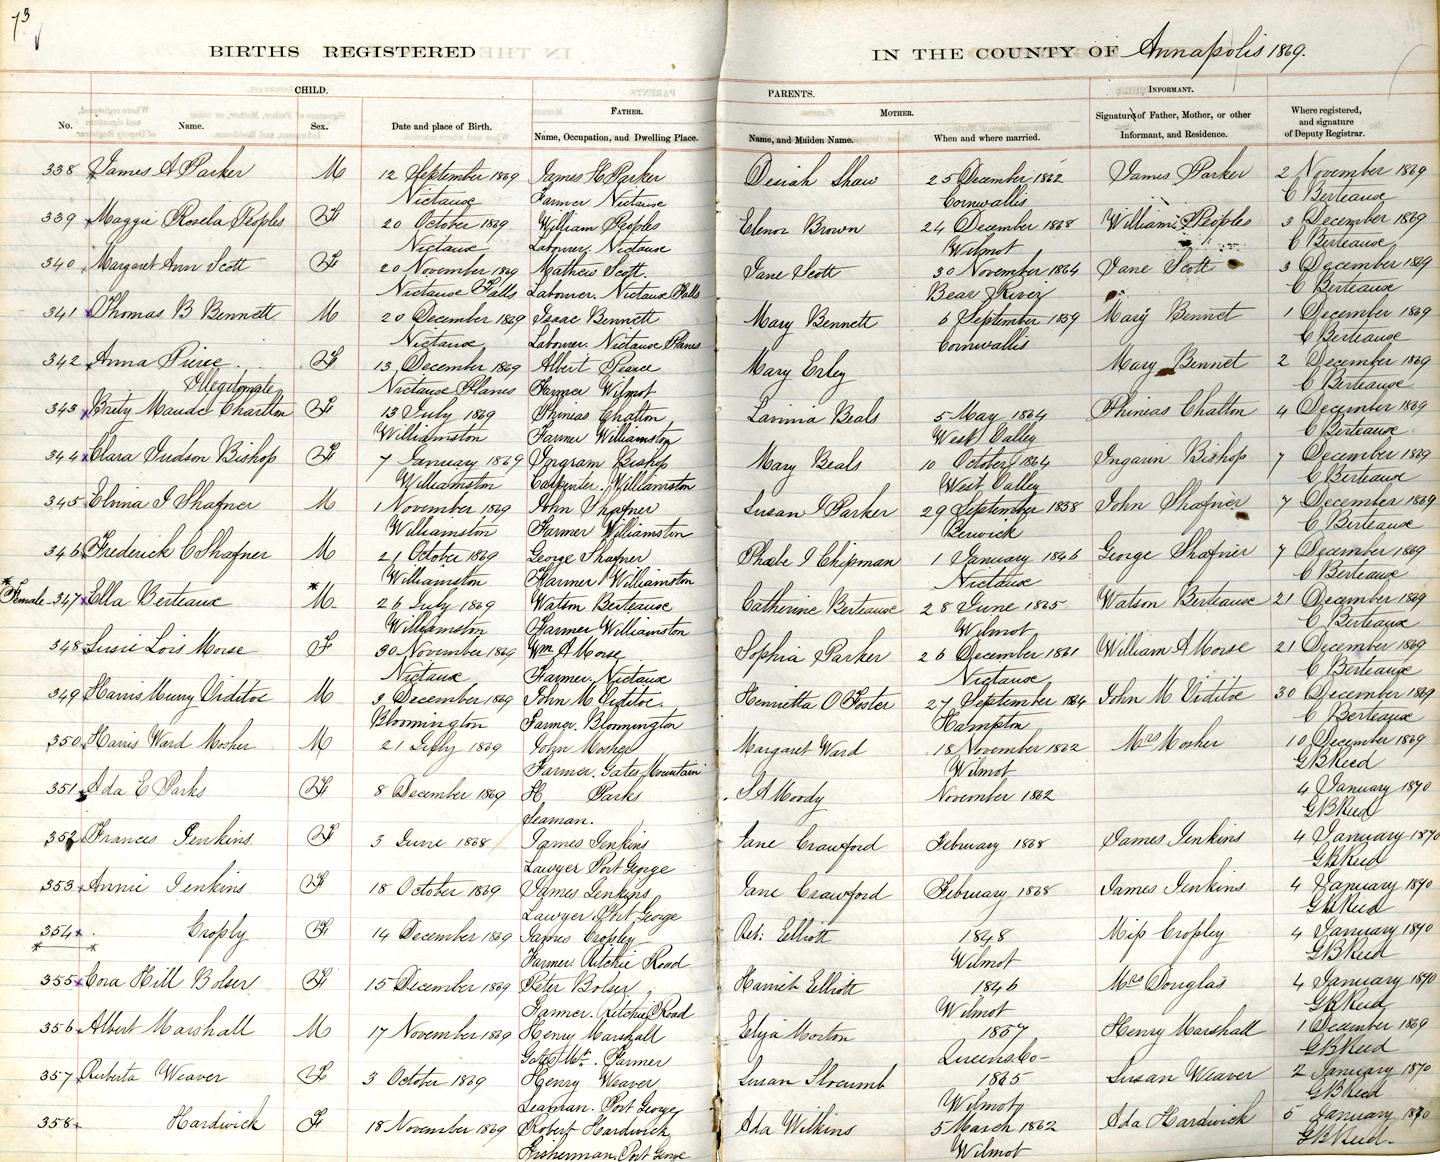 73
BIRTHS REGISTERED IN THE COUNTY OF Annapolis 1869.
CHILD. PARENTS. INFORMANT.
FATHER. MOTHER.
No. Name. Sex. Date and place of Birth. Name, Occupation, and Dwelling Place. Name, and Maiden Name. When and where married. Signature of Father, Mother, or other Informant, and Residence. Where registered, and signature of Deputy Registrar.
338 James A Parker M 12 September 1869 James H Parker Desiah Shaw 25 December 1862 James Parker 2 November 1869
Nictaux Farmer Nictaux Cornwallis C Berteaux
339 Maggie Rosela Peoples F 20 October 1869 William Peoples Elenor Brown 24 December 1868 William Peoples 3 December 1869
Nictaux Labourer. Nictaux Wilmot C Berteaux
340 Margaret Ann Scott F 20 November 1869 Mathew Scott. Jane Scott 30 November 1864 Jane Scott 3 December 1869
Nictaux Falls Labourer. Nictaux Falls Bear River C Berteaux
341 Thomas B Bennett M 20 December 1869 Isaac Bennett Mary Bennett 6 September 1859 Mary Bennet 1 December 1869
Nictaux Labourer. Nictaux Planes Cornwallis C Berteaux
342 Anna Pierce F 13 December Albert Pearce Mary Erley Mary Bennet 2 December 1869
Illegitemate Nictaux Planes Farmer Wilmot C Berteaux
343 Brity Maude Charlton F 13 July 1869 Phinias Chalton Lavinia Beals 5 May 1864 Phineas Chalton 4 December 1869
Williamston Farmer Williamston West Valley C Berteaux
344 Clara Judson Bishop F 7 January 1869 Ingram Bishop Mary Beals 10 October 1864 Ingarin Bishop 7 December 1869
Williamston Carpenter. Williamston West Valley C Berteaux
345 Elvina J Shafner M 1 November 1869 John Shafner Susan J Parker 29 September 1858 John Shafner 7 December 1869
Williamston Farmer Williamston Berwick C Berteaux
346 Frederick C Shafner M 21 October 1869 George Shafner Phoebe J Chipman 1 January 1846 George Shafner 7 December 1869
Williamston Farmer Williamston Nictaux C Berteaux
* Female 347 Ella Berteaux * M 26 July 1869 Watson Berteause Catherine Berteause 28 June 1865 Watson Berteause 21 December 1869
Williamston Farmer Williamston Wilmot C Berteaux
348 Susie Lois Morse F 30 November 1869 Wm A Morse Sophia Parker 26 December 1861 William A Morse 21 December 1869
Nictaux Farmer. Nictaux Nictaux C Berteaux
349 Harris Murry Viditoe M 9 December 1869 John M Viditoe. Henrietta O Foster 27 September 1864 John M Viditoe 30 December 1869
Bloomington Farmer. Bloomington Hampton C Berteaux
350 Harris Ward Mosher M 21 July 1869 John Mosher Margaret Ward 18 November 1862 Mrs Mosher 10 December 1869
Farmer. Gates Mountain Wilmot G B Reed
351 Ada E Parks F 8 December 1869 H Parks S A Moody November 1862 4 January 1870
Seaman. G B Reed
352 Frances Jenkins F 3 June 1868 James Jenkins Jane Crawford February 1868 James Jenkins 4 January 1870
Lawyer Port George G B Reed
353 Annie Jenkins F 18 October 1869 James Jenkins Jane Crawford February 1868 James Jenkins 4 January 1870
Lawyer Port George G B Reed
354 Croply F 14 December 1869 James Cropley Reb: Elliott 1848 Miss Cropley 4 January 1870
* * Farmer Ritchie Road Wilmot G B Reed
355 Cora Hill Bolser F 15 December 1869 Peter Bolser Harriet Elliott 1846 Mrs Douglas 4 January 1870
Farmer. Ritchie Road Wilmot G B Reed
356 Albert Marshall M 17 November 1869 Henry Marshall Eliza Morton 1857 Henry Marshall 1 December 1869
Gates Mt. Farmer Queens Co- G B Reed
357 Ruberta Weaver F 3 October 1869 Henry Weaver Susan Slocumb 1865 Susan Weaver 2 January 1870
Seaman. Port George Wilmot G B Reed
358 Hardwick F 18 November 1869 Robert Hardwick Ada Wilkins 5 March 1862 Ada Hardwick 5 January 1870
Fisherman. Port George Wilmot G B Reed